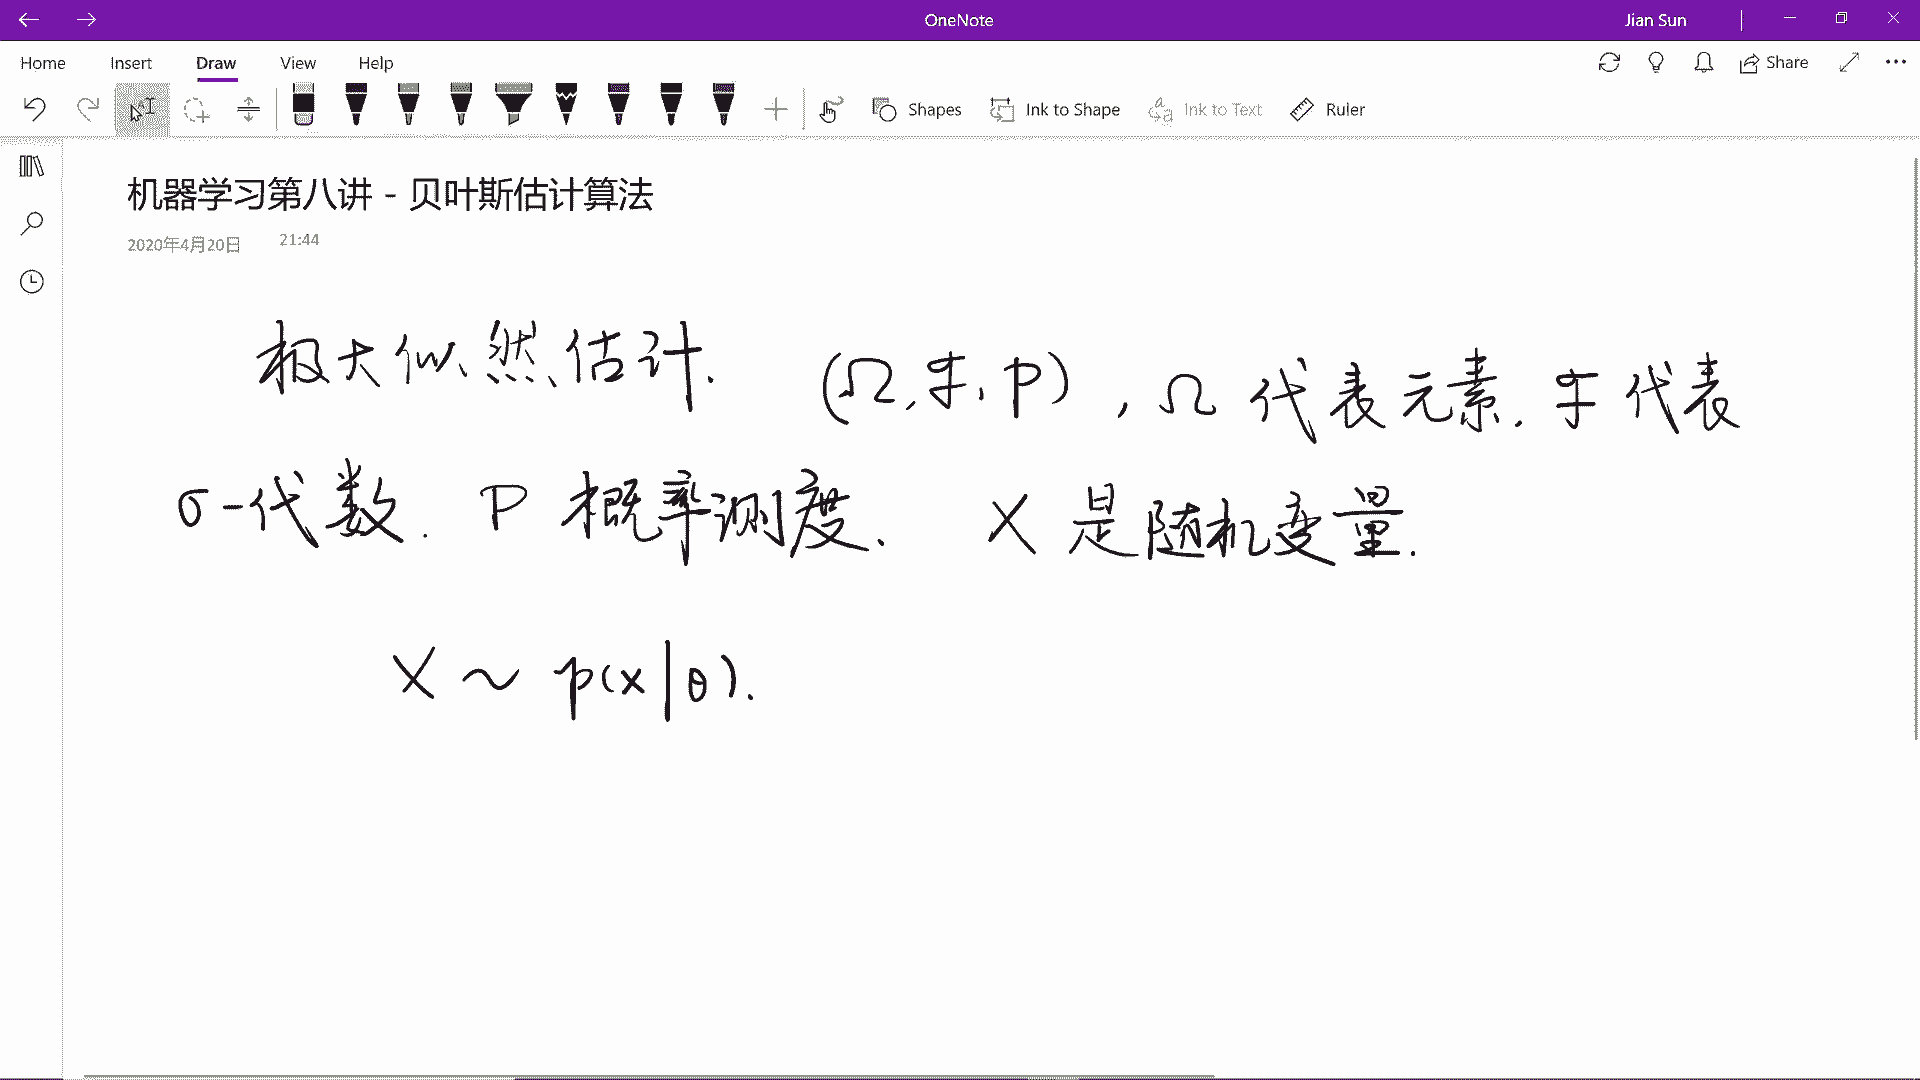 OneNote
Jian Sun
Home Insert Draw View Help
Share
Shapes Ink to Shape Ink to Text Ruler
机器学习第八讲 - 贝叶斯估计算法
2020年4月20日 21:44
极大似然估计. (Ω, F, P), Ω 代表元素. F 代表
σ-代数. P 概率测度. X 是随机变量.
X ~ p(x|θ).